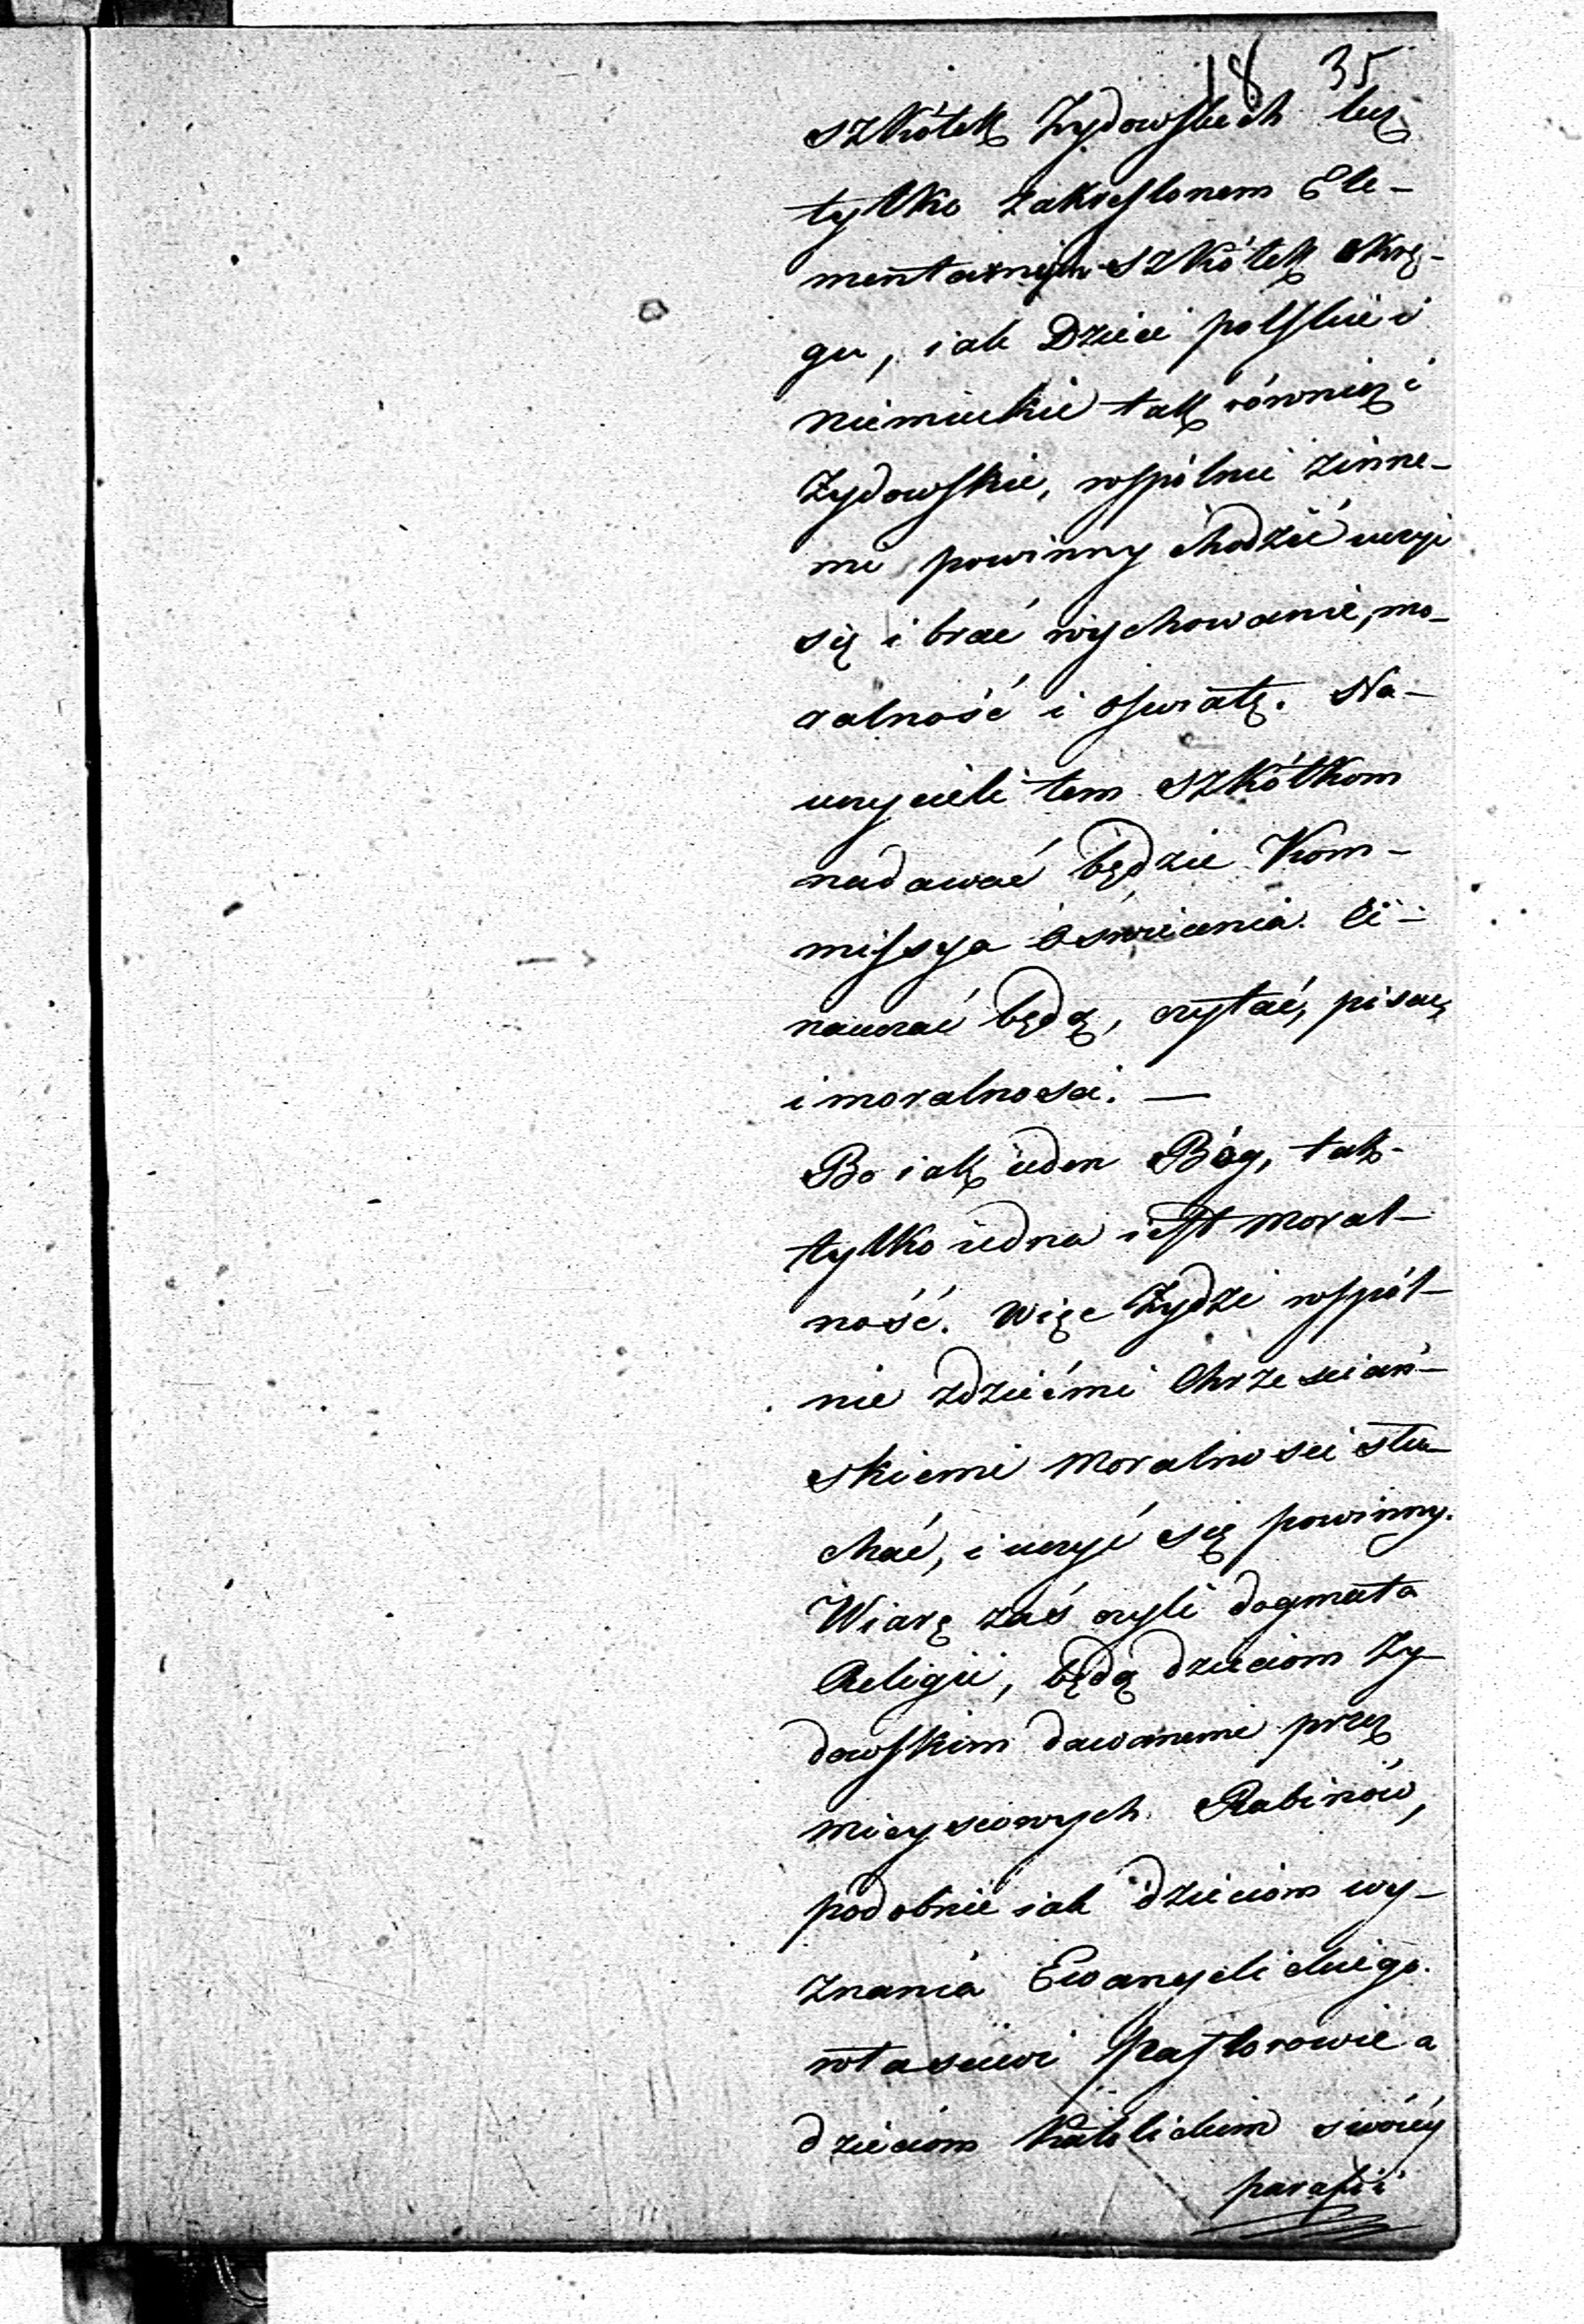 18 35
szkółek Żydowskich lecz
tylko zakreślonem Ele-
mentarnym szkółek okrę-
gu, iak Dzieci polskie i
niemieckie tak również i
Żydowskie, wspólnie zinne-
mi powinny chodzić uczyć
się i brać wychowanie, mo-
ralność i oswiatę. Na-
uczycieli tem szkółkom
nadawać będzie Kom-
missya Oświecenia. Ci
nauczać będą, czytać, pisać,
i moralnosci. —
Bo iak ieden Bóg, tak
tylko iedna iest moral-
ność. Więc Żydzi wspól-
nie zdziećmi Chrzesciań-
skiemi moralnosci słu-
chać, i uczyć się powinny.
Wiarę zaś czyli dogmata
Religii, będą dzieciom Ży-
dowskim dawanemi przez
mieyscowych Rabinów,
podobnie iak dzieciom wy-
znania Ewangelickiego
własciwi Pastorowie a
dzieciom Katolickim swoiey
parafii